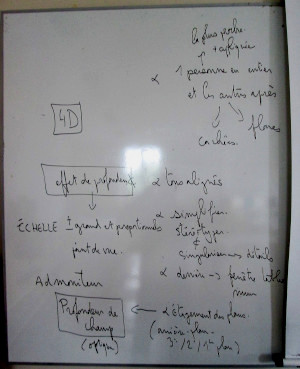 la plus proche
+ appliquée
α 1 personne en entier
et les autres après
cachées
floues
4D
effet de profondeur
α tous alignés
ÉCHELLE ± grand et proportionnels
point de vue.
α simplifier
stéréotyper
singulariser détails
α dessin → fenêtre
mur
Admoniteur
Profondeur de
champ
(optique)
α étagement des plans
(arrière-plan
3e/2e/1er plan)